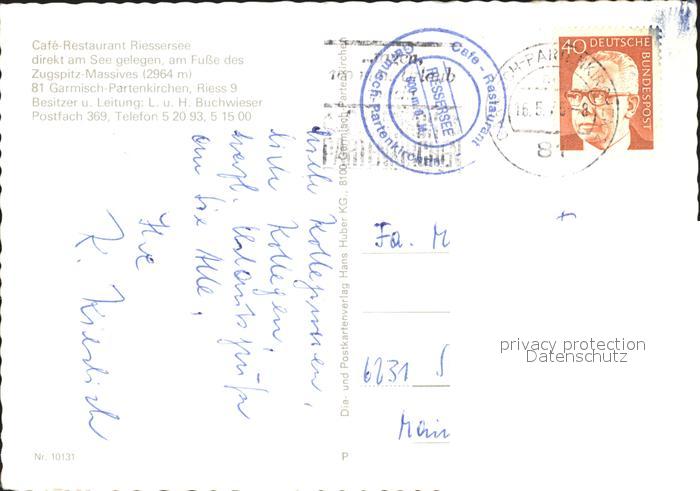 Café-Restaurant Riessersee
direkt am See gelegen, am Fuße des
Zugspitz-Massives (2964 m)
81 Garmisch-Partenkirchen, Riess 9
Besitzer u. Leitung: L. u. H. Buchwieser
Postfach 369, Telefon 5 20 93, 5 15 00
Cafe - Restaurant
RIESSERSEE
Garmisch-Partenkirchen
81
40 DEUTSCHE
BUNDESPOST
Kolleginnen,
Kollegen,
Urlaubsgrüße
an Sie Alle,
Ihr
K.
Dia- und Postkartenverlag Hans Huber KG., 8100 Garmisch-Partenkirchen
Fa. M
6231 S
Main
privacy protection
Datenschutz
Nr. 10131
P